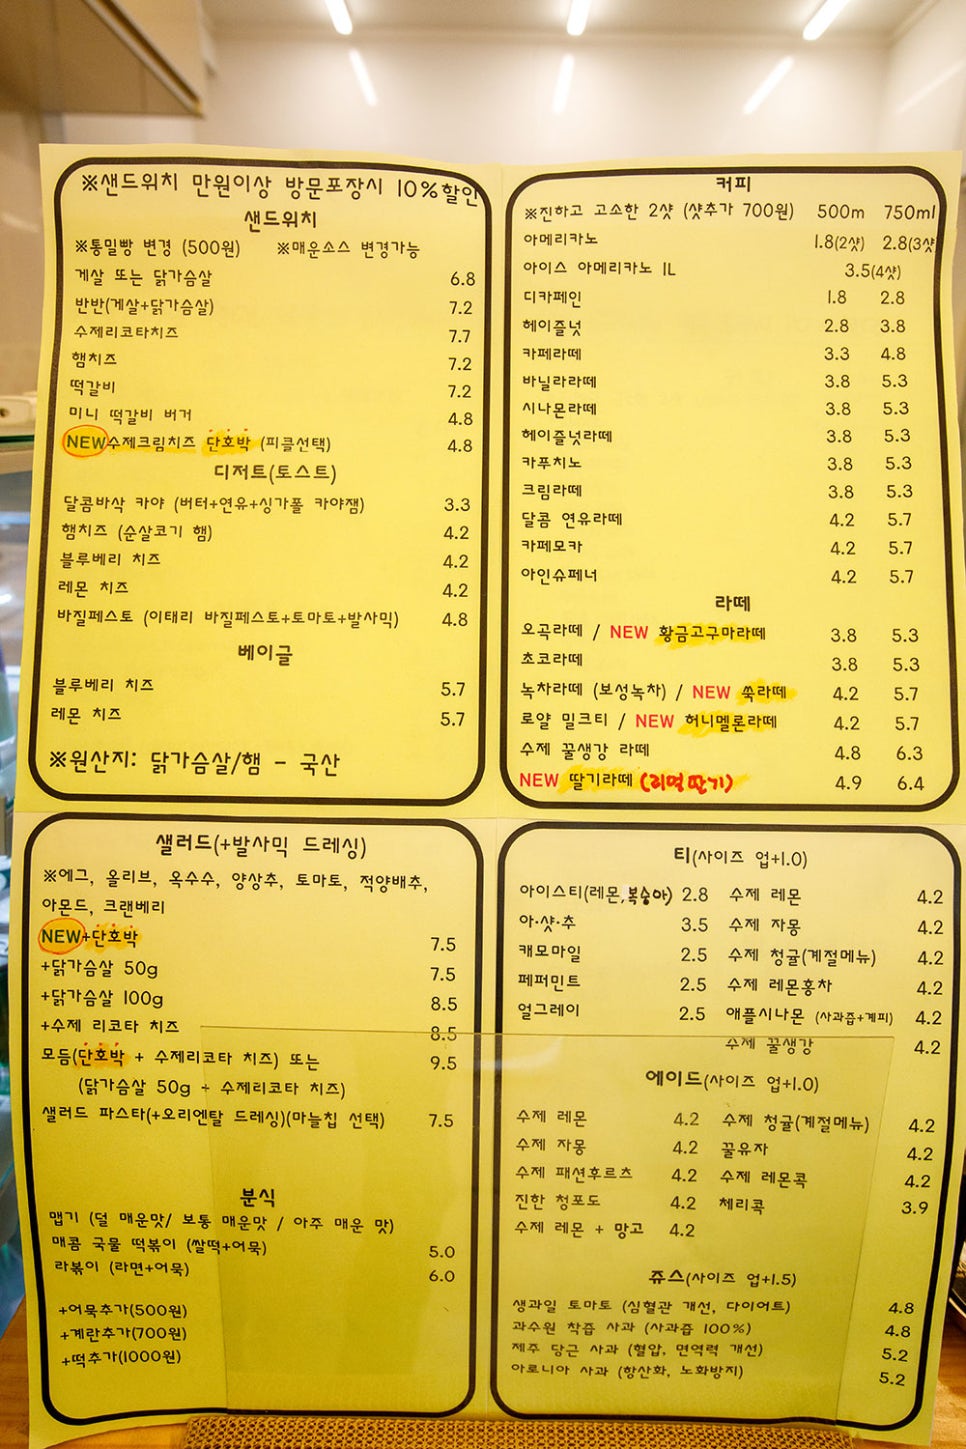 ※샌드위치 만원이상 방문포장시 10%할인
샌드위치
※통밀빵 변경 (500원) ※매운소스 변경가능
게살 또는 닭가슴살 6.8
반반(게살+닭가슴살) 7.2
수제리코타치즈 7.7
햄치즈 7.2
떡갈비 7.2
미니 떡갈비 버거 4.8
NEW수제크림치즈 단호박 (피클선택) 4.8
디저트(토스트)
달콤바삭 카야 (버터+연유+싱가폴 카야잼) 3.3
햄치즈 (순살코기 햄) 4.2
블루베리 치즈 4.2
레몬 치즈 4.2
바질페스토 (이태리 바질페스토+토마토+발사믹) 4.8
베이글
블루베리 치즈 5.7
레몬 치즈 5.7
※원산지: 닭가슴살/햄 - 국산
커피
※진하고 고소한 2샷 (샷추가 700원) 500m 750ml
아메리카노 1.8(2샷) 2.8(3샷
아이스 아메리카노 1L 3.5(4샷)
디카페인 1.8 2.8
헤이즐넛 2.8 3.8
카페라떼 3.3 4.8
바닐라라떼 3.8 5.3
시나몬라떼 3.8 5.3
헤이즐넛라떼 3.8 5.3
카푸치노 3.8 5.3
크림라떼 3.8 5.3
달콤 연유라떼 4.2 5.7
카페모카 4.2 5.7
아인슈페너 4.2 5.7
라떼
오곡라떼 / NEW 황금고구마라떼 3.8 5.3
초코라떼 3.8 5.3
녹차라떼 (보성녹차) / NEW 쑥라떼 4.2 5.7
로얄 밀크티 / NEW 허니멜론라떼 4.2 5.7
수제 꿀생강 라떼 4.8 6.3
NEW 딸기라떼 (리얼딸기) 4.9 6.4
샐러드(+발사믹 드레싱)
※에그, 올리브, 옥수수, 양상추, 토마토, 적양배추,
아몬드, 크랜베리
NEW+단호박 7.5
+닭가슴살 50g 7.5
+닭가슴살 100g 8.5
+수제 리코타 치즈 8.5
모듬(단호박 + 수제리코타 치즈) 또는 9.5
(닭가슴살 50g + 수제리코타 치즈)
샐러드 파스타(+오리엔탈 드레싱)(마늘칩 선택) 7.5
분식
맵기 (덜 매운맛/ 보통 매운맛 / 아주 매운 맛)
매콤 국물 떡볶이 (쌀떡+어묵) 5.0
라볶이 (라면+어묵) 6.0
+어묵추가(500원)
+계란추가(700원)
+떡추가(1000원)
티(사이즈 업+1.0)
아이스티(레몬,복숭아) 2.8 수제 레몬 4.2
아·샷·추 3.5 수제 자몽 4.2
캐모마일 2.5 수제 청귤(계절메뉴) 4.2
페퍼민트 2.5 수제 레몬홍차 4.2
얼그레이 2.5 애플시나몬 (사과즙+계피) 4.2
수제 꿀생강 4.2
에이드(사이즈 업+1.0)
수제 레몬 4.2 수제 청귤(계절메뉴) 4.2
수제 자몽 4.2 꿀유자 4.2
수제 패션후르츠 4.2 수제 레몬콕 4.2
진한 청포도 4.2 체리콕 3.9
수제 레몬 + 망고 4.2
쥬스(사이즈 업+1.5)
생과일 토마토 (심혈관 개선, 다이어트) 4.8
과수원 착즙 사과 (사과즙 100%) 4.8
제주 당근 사과 (혈압, 면역력 개선) 5.2
아로니아 사과 (항산화, 노화방지) 5.2